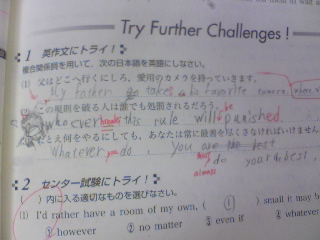 Try Further Challenges !
1 英作文にトライ！
複合関係詞を用いて，次の日本語を英語にしなさい。
(1) 父はどこへ行くにしろ，愛用のカメラを持っていきます。
My father takes his favorite camera
この規則を破る人は誰でも処罰されるだろう。
whoever breaks this rule will be punished.
とえ何をやるにしても，あなたは常に最善を尽くさなければいけません
Whatever you do, You are the best
must always do your best.
2 センター試験にトライ！
( )内に入る適切なものを選びなさい。
(1) I'd rather have a room of my own, ( 1 ) small it may b
① however ② no matter ③ even if ④ whatever